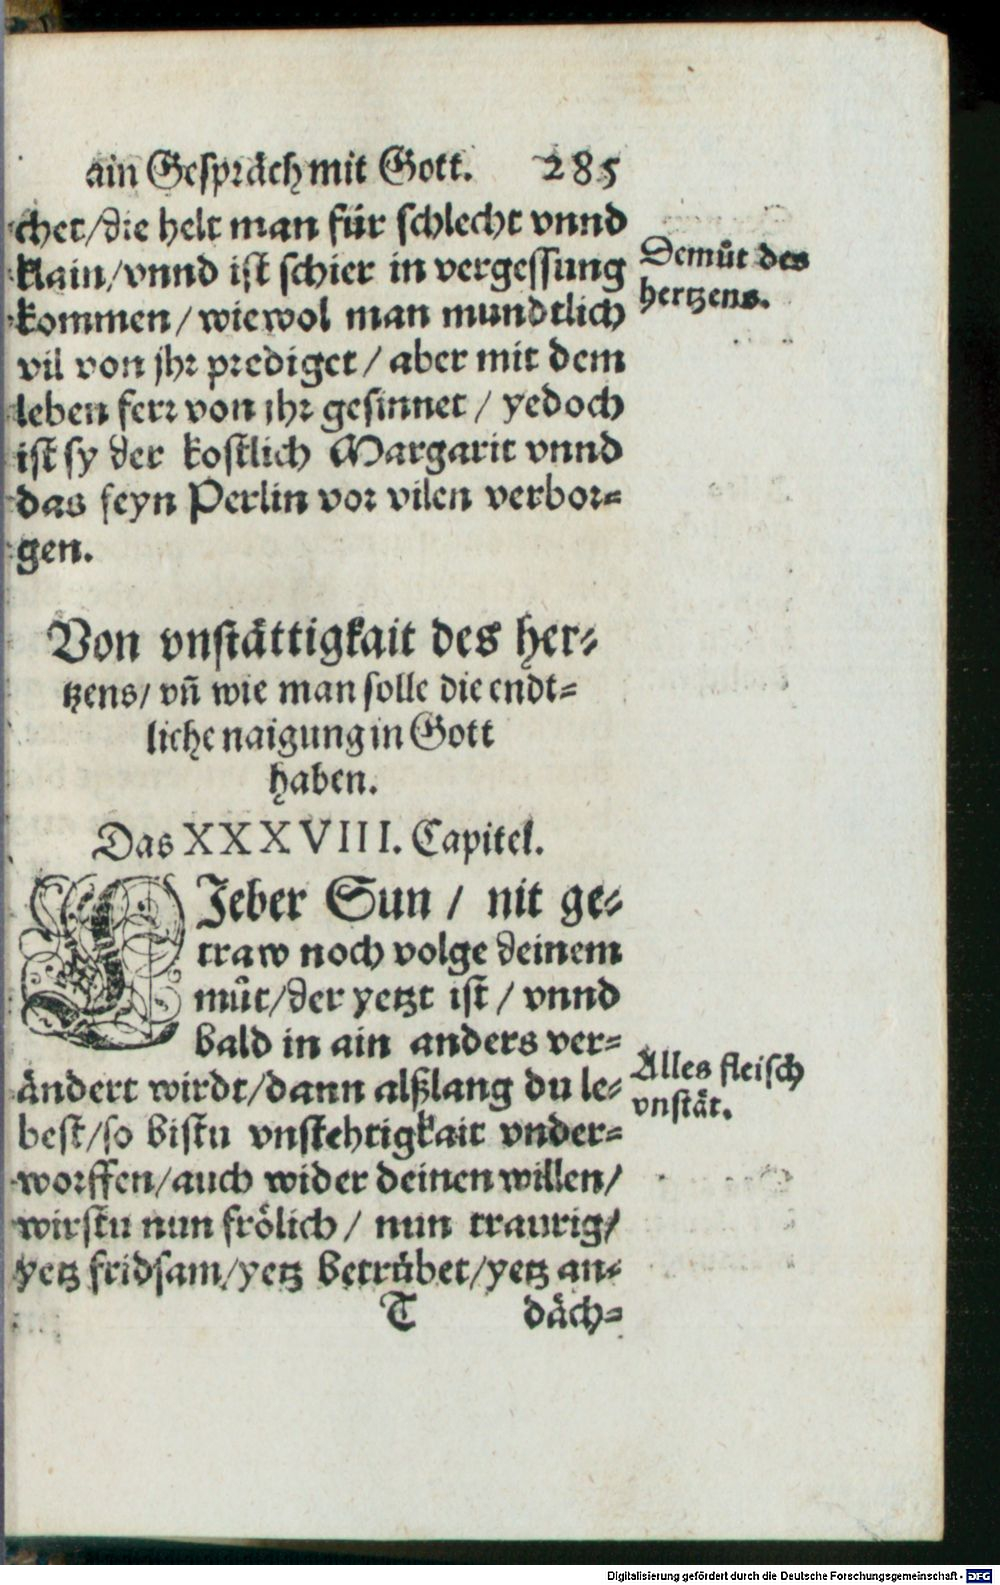 ain Gespräch mit Gott. 285
chet/die helt man für schlecht vnnd
klain/vnnd ist schier in vergessung
kommen/wiewol man mundtlich
vil von jhr prediget/aber mit dem
leben ferr von jhr gesinnet/yedoch
ist sy der kostlich Margarit vnnd
das feyn Perlin vor vilen verbor-
gen.
Demůt des
hertzens.
Von vnstättigkait des her-
tzens/vñ wie man solle die endt-
liche naigung in Gott
haben.
Das XXXVIII. Capitel.
LJeber Sun/nit ge-
traw noch volge deinem
můt/der yetzt ist/vnnd
bald in ain anders ver-
ändert wirdt/dann alßlang du le-
best/so bistu vnstehtigkait vnder-
worffen/auch wider deinen willen/
wirstu nun frölich/nun traurig/
yetz fridsam/yetz betrübet/yetz an-
Alles fleisch
vnstät.
T däch-
Digitalisierung gefördert durch die Deutsche Forschungsgemeinschaft - DFG